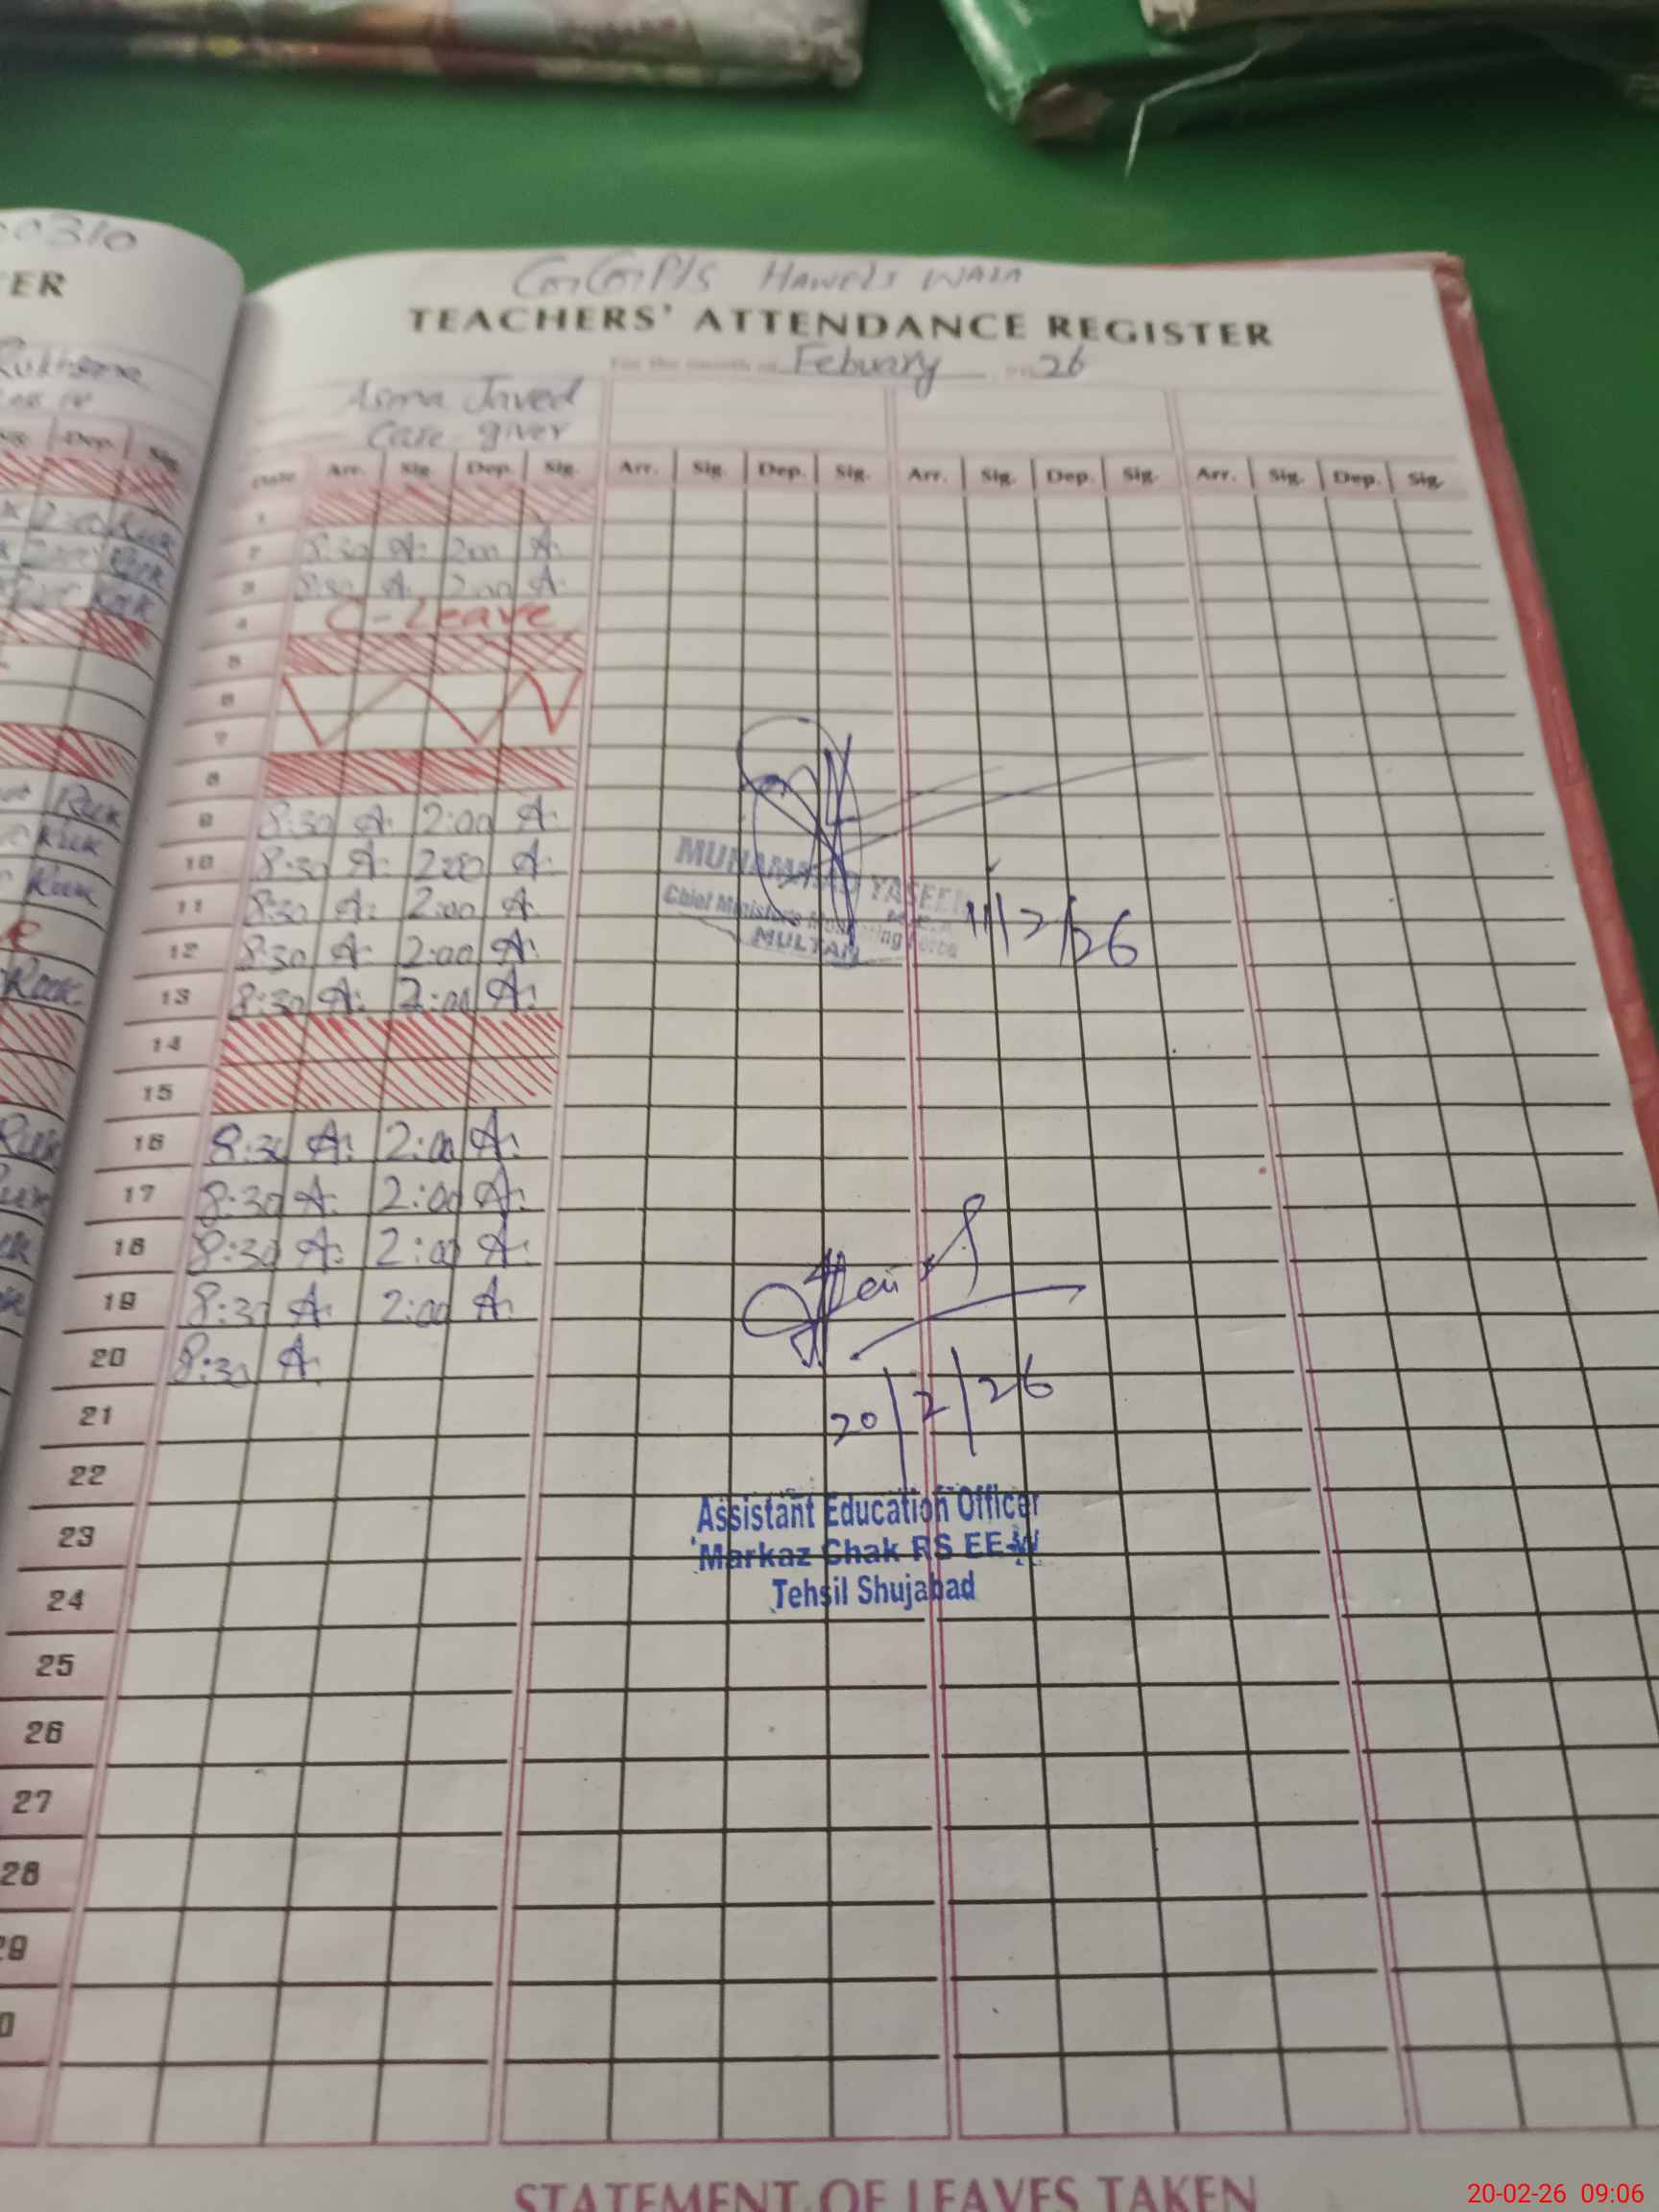 0310
ER
GGPS HAWELI WALA
TEACHERS' ATTENDANCE REGISTER
For the month of Febuary 26
Asma Javed
Care giver
Dep. Sig.
Date Arr. Sig. Dep. Sig. Arr. Sig. Dep. Sig. Arr. Sig. Dep. Sig. Arr. Sig. Dep. Sig.
1
2 8:30 A. 2:00 A.
3 8:30 A. 2:00 A.
4 C-Leave
5
6
7
8
9 8:30 A. 2:00 A.
10 8:30 A. 2:00 A.
11 8:30 A. 2:00 A.
12 8:30 A. 2:00 A.
13 8:30 A. 2:00 A.
14
15
16 8:30 A. 2:00 A.
17 8:30 A. 2:00 A.
18 8:30 A. 2:00 A.
19 8:30 A. 2:00 A.
20 8:30 A.
21
22
23
24
25
26
27
28
29
0
MUHAMMAD YASEEN
Chief Minister's Monitoring Force
MULTAN
11/2/26
20/2/26
Assistant Education Officer
Markaz Chak RS EE-W
Tehsil Shujabad
STATEMENT OF LEAVES TAKEN
20-02-26 09:06